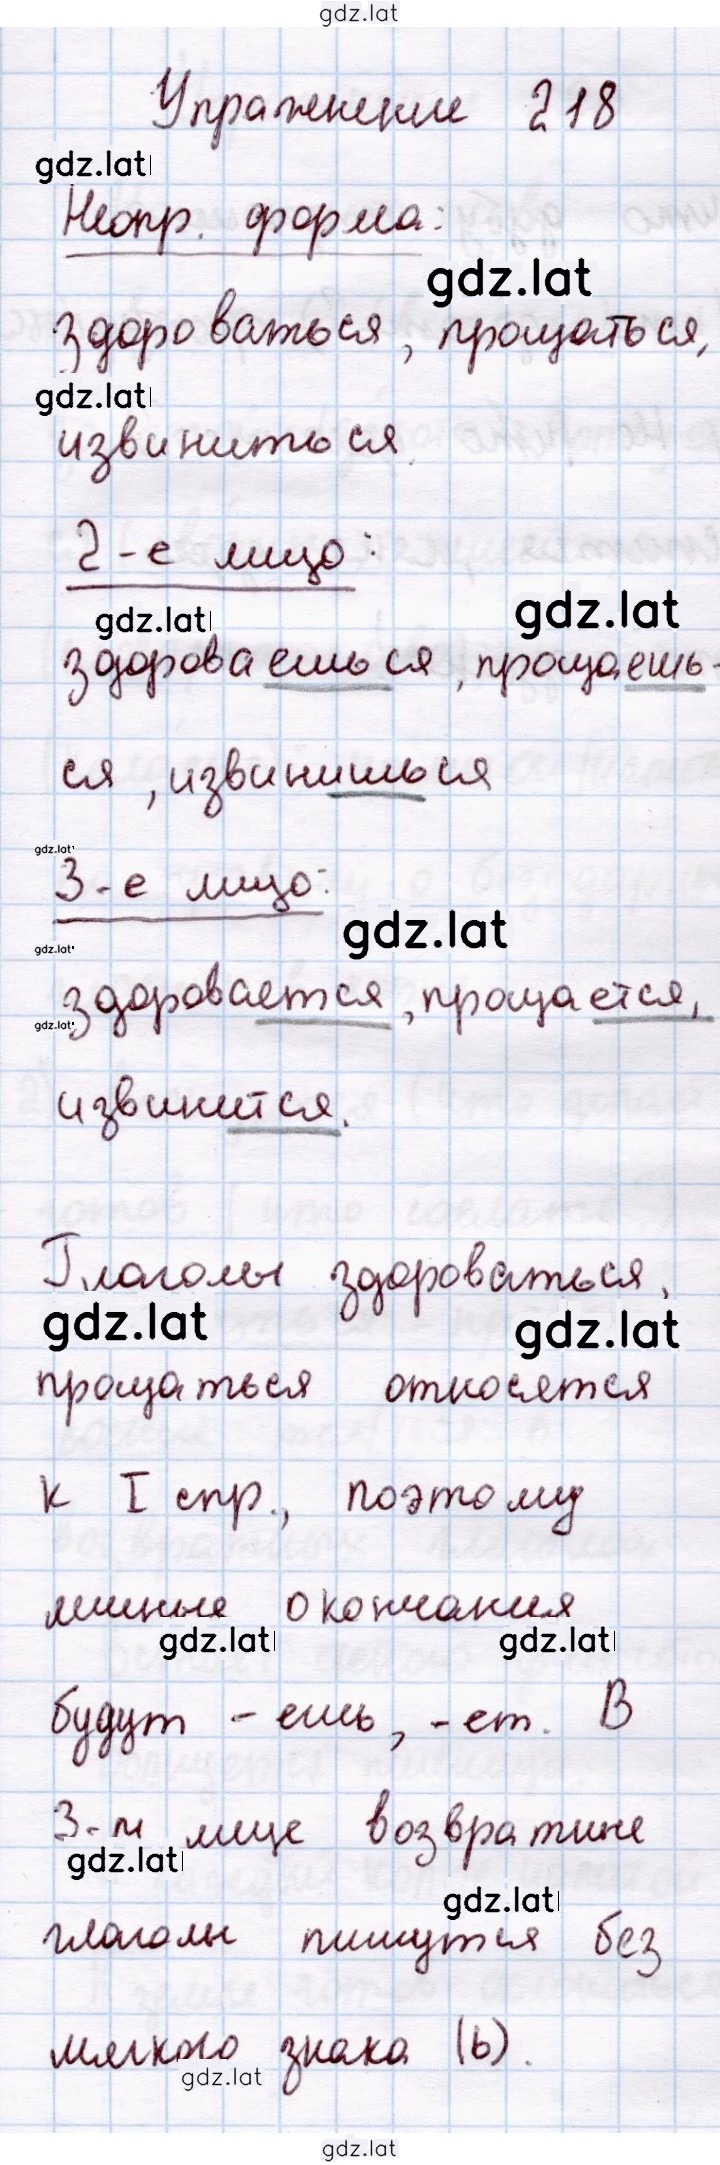 gdz.lat
Упражнение 218
gdz.lat
Неопр. форма:
gdz.lat
здороваться, прощаться,
gdz.lat
извиниться.
2-е лицо:
gdz.lat gdz.lat
здороваешься, прощаешь-
ся, извинишься
gdz.lat
3-е лицо:
gdz.lat
gdz.lat
здоровается, прощается,
gdz.lat
извинится.
Глаголы здороваться,
gdz.lat gdz.lat
прощаться относятся
к I спр., поэтому
личные окончания
gdz.lat gdz.lat
будут -ешь, -ет. В
3-м лице возвратине
gdz.lat
gdz.lat
глаголы пишутся без
мягкого знака (ь).
gdz.lat
gdz.lat